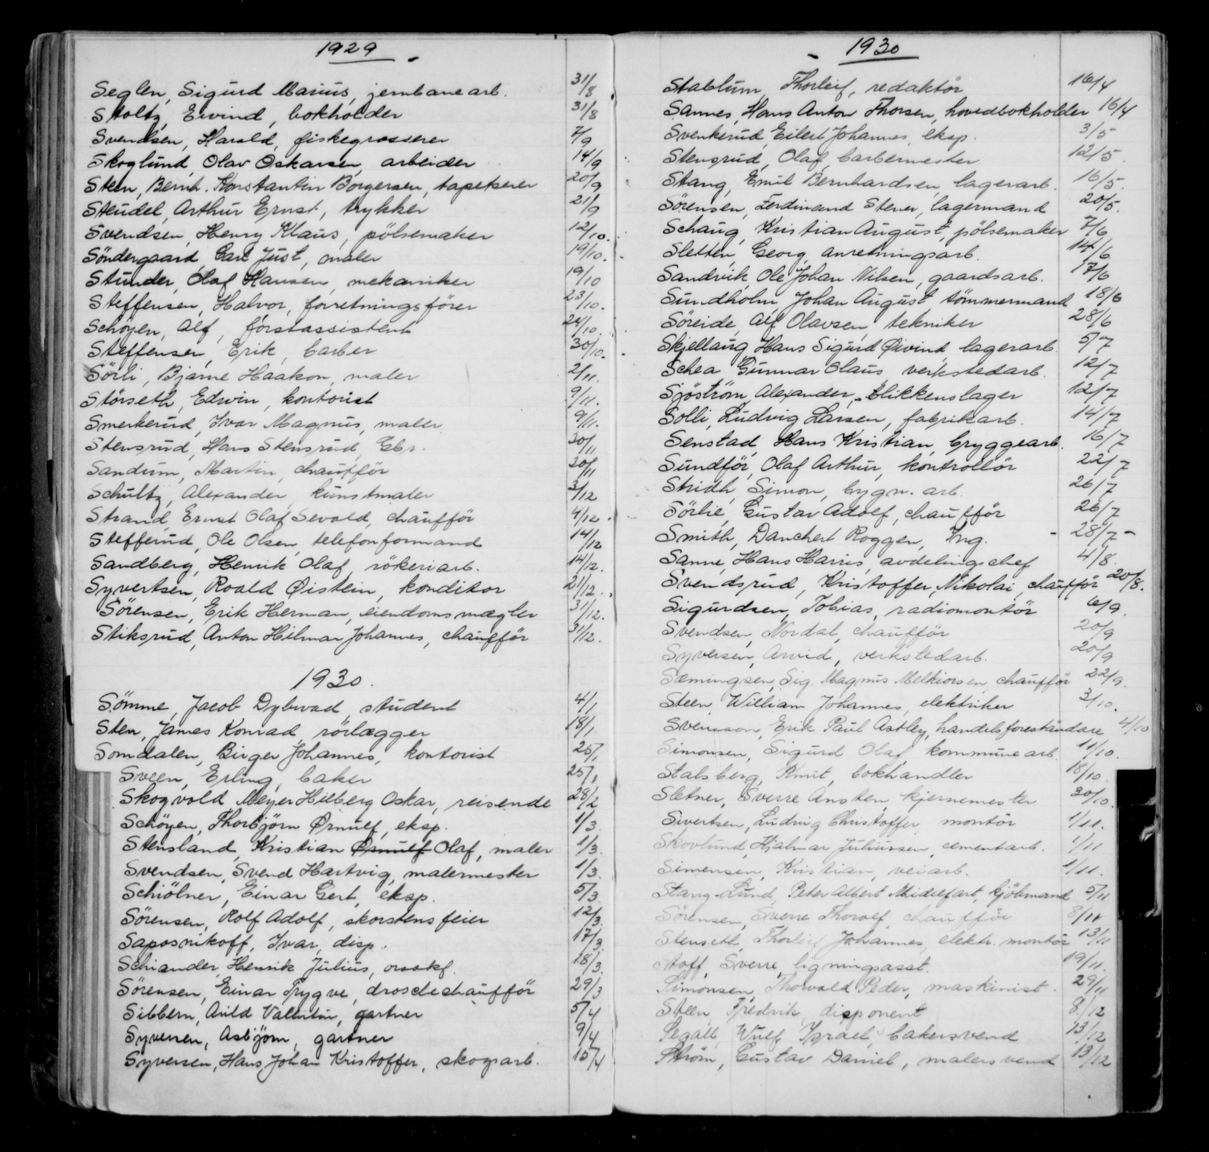 1929
Seglen, Sigurd Marius, jernbanearb. 31/8
Stoltz, Eivind, bokholder 31/8
Svendsen, Harald, fiskegrosserer 7/9
Skoglund, Olav Oskarsen, arbeider 14/9
Steen, Bernh. Konstantin Borgersen, tapetserer 20/9
Steudel, Arthur Ernst, trykker 21/9
Svendsen, Henry Klaus, pölsemaker 12/10.
Söndergaard Carl Just, maler 19/10.
Stunder, Olaf Hansen, mekaniker 19/10
Steffensen, Halvor, forretningsförer 23/10.
Schöyen, Alf, förstassistent 24/10.
Steffensen, Erik, barber 30/10.
Sörli, Bjarne Haakon, maler 2/11.
Störseth, Edwin, kontorist 9/11.
Smerkerud, Ivar Magnus, maler 9/11.
Stensrud, Hans Stensrud, Gbr. 30/11
Sandum, Martin, chaufför 30/11
Schultz, Alexander, kunstmaler 3/12
Strand, Ernst Olaf Sevald, chaufför 4/12.
Stefferud, Ole Olsen, telefonformand 14/12
Sandberg, Henrik Olaf, rökeriarb. 14/12.
Syvertsen, Roald Öistein, konditor 21/12.
Sörensen, Erik Herman, eiendomsmægler 31/12.
Stiksrud, Anton Hilmar Johannes, chaufför 31/12.
1930.
Sömme, Jacob Dybwad student 4/1
Sten, James Konrad rörlægger 18/1
Somdalen, Birger Johannes, kontorist 25/1
Sveen, Erling, baker 25/1
Skogvold Meyer Hilberg Oskar, reisende 28/2
Schöyen, Thorbjörn Örnulf, eksp. 1/3
Stensland, Kristian Örnulf Olaf, maler 1/3
Svendsen, Svend Hartvig, malermester 1/3.
Schiölner, Einar Gert, eksp. 5/3
Sörensen, Rolf Adolf, skorstensfeier 12/3
Saposnikoff, Ivar, disp. 17/3
Schiander, Henrik Julius, orsakf. 18/3.
Sörensen, Einar Trygve, droschechaufför 29/3
Sibbern, Arild Valentin, gartner 5/4
Syversen, Asbjörn, gartner 9/4
Syversen, Hans Johan Kristoffer, skogsarb. 15/4
1930
Stablum, Thorleif, redaktör 16/4
Sannes, Hans Anton Thorsen, hovedbokholder 16/4
Svenkerud, Eilert Johannes, eksp. 3/5
Stensrud, Olaf barbermester 12/5.
Stang, Emil Bernhardsen, lagerarb. 16/5.
Sörensen, Ferdinand Stener, lagermand 20/5.
Schaug, Kristian August, pölsemaker 7/6
Sletten, Georg, anretningsarb. 14/6
Sandvik, Ole Johan Nilsen, gaardsarb. 17/6
Sundholm, Johan August, tömmermand 18/6
Söreide, Alf Olavsen, tekniker 28/6
Skjellaug, Hans Sigurd Öivind, lagerarb. 5/7
Schea, Gunnar Olaus verkstedarb. 12/7
Sjöström, Alexander, blikkenslager 12/7
Solli, Ludvig Larsen, fabrikarb. 14/7
Senstad, Hans Kristian, bryggearb. 16/7
Sundför, Olaf Arthur, kontrollör 22/7
Stridh, Simon, bygn. arb. 26/7
Sörlie, Gustav Adolf, chaufför 26/7
Smith, Danchert Roggen, Ing. - 28/7 -
Sanne, Hans Harris, avdelingschef 4/8.
Svendsrud, Kristoffer, Nikolai, chaufför 20/8.
Sigurdsen, Tobias, radiomontör 6/9.
Svendsen, Nordal, chaufför 20/9
Syversen, Arvid, verkstedarb. 20/9
Sæmingsen, Sig. Magnus Melkiorsen, chaufför 22/9.
Steen, William Johannes, elektriker 3/10.
Svensson, Erik Paul Astley, handelsforestandare 4/10
Simonsen, Sigurd Olaf, kommunearb. 11/10.
Stalsberg, Knut, bokhandler 18/10.
Sletner, Sverre Ansten, kjernemester 30/10.
Sivertsen, Ludvig Christoffer, montör 1/11.
Skovlund, Hjalmar Juliussen, cementarb. 1/11
Simensen, Kristian, veiarb. 1/11.
Stang-Lund, Peter Albert Middelfart, kjöbmand 5/11
Sörensen, Sverre Thorolf, chaufför 8/11
Stenseth, Thorleif Johannes, elektr. montör 13/11
Stoff, Sverre, ligningsasst. 19/11
Simonsen, Thorvald Peder, maskinist. 29/11
Steen, Fredrik, disponent 8/12
Segall, Wulf Israel, bakersvend 13/12
Ström, Gustav Daniel, malersvend 13/12